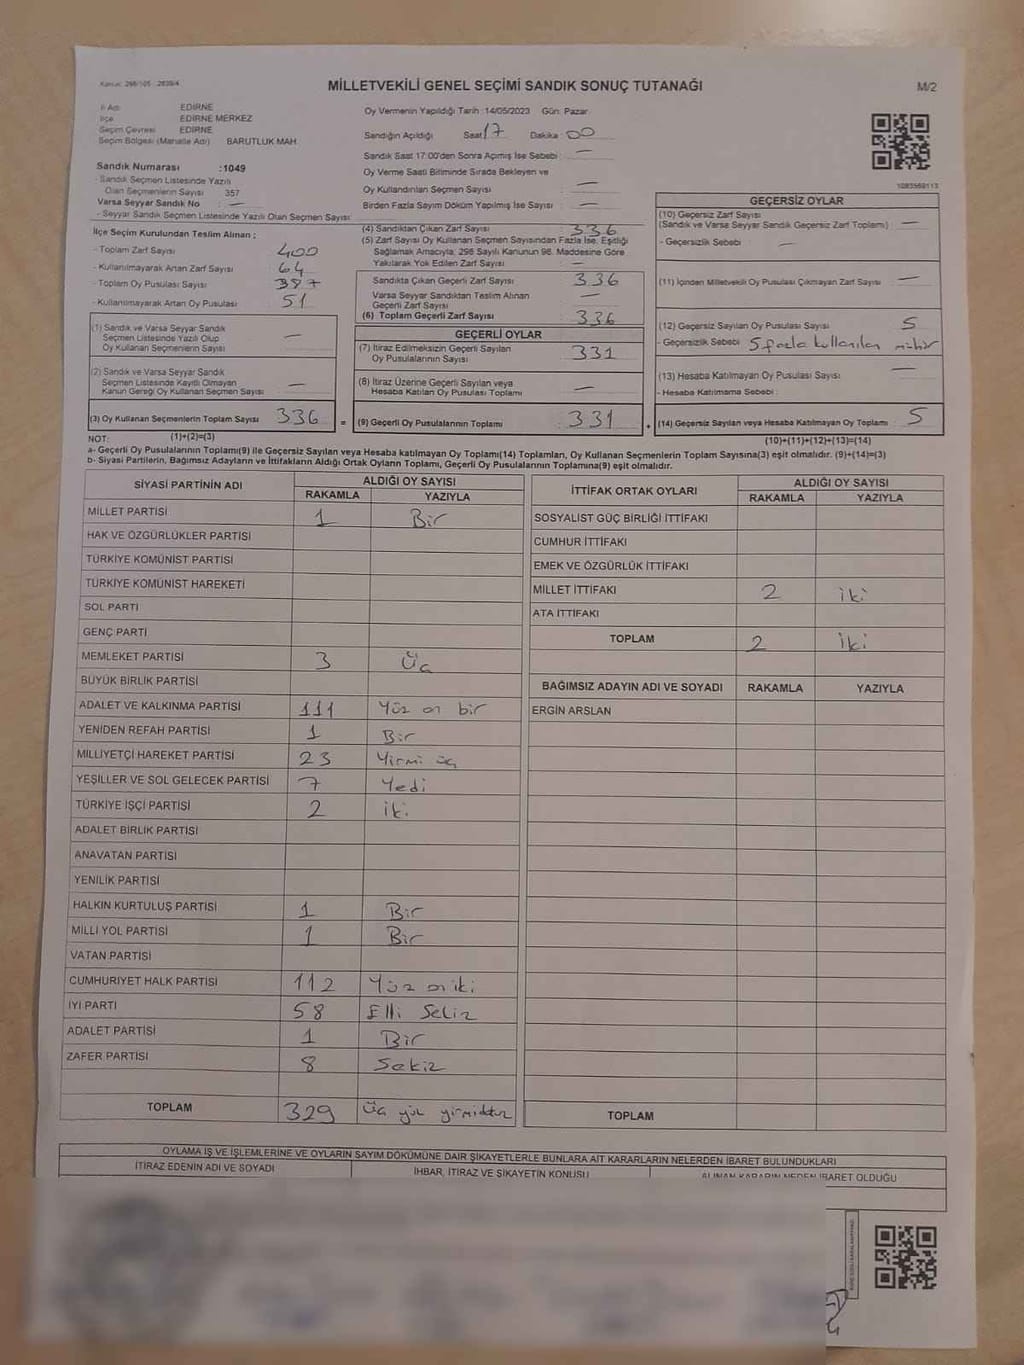 MİLLETVEKİLİ GENEL SEÇİMİ SANDIK SONUÇ TUTANAĞI
M/2
İl Adı EDİRNE
İlçe EDİRNE MERKEZ
Seçim Çevresi EDİRNE
Seçim Bölgesi (Mahalle Adı) BARUTLUK MAH
Sandık Numarası :1049
- Sandık Seçmen Listesinde Yazılı
Olan Seçmenlerin Sayısı 357
Varsa Seyyar Sandık No : —
- Seyyar Sandık Seçmen Listesinde Yazılı Olan Seçmen Sayısı
Oy Vermenin Yapıldığı Tarih :14/05/2023 Gün: Pazar
Sandığın Açıldığı Saat 17 Dakika 00
Sandık Saat 17:00'den Sonra Açılmış İse Sebebi : —
Oy Verme Saati Bitiminde Sırada Bekleyen ve
Oy Kullandırılan Seçmen Sayısı : —
Birden Fazla Sayım Döküm Yapılmış İse Sayısı : —
1083569113
İlçe Seçim Kurulundan Teslim Alınan ;
- Toplam Zarf Sayısı 400
- Kullanılmayarak Artan Zarf Sayısı 64
- Toplam Oy Pusulası Sayısı 387
- Kullanılmayarak Artan Oy Pusulası 51
(1) Sandık ve Varsa Seyyar Sandık
Seçmen Listesinde Yazılı Olup
Oy Kullanan Seçmenlerin Sayısı —
(2) Sandık ve Varsa Seyyar Sandık
Seçmen Listesinde Kayıtlı Olmayan
Kanun Gereği Oy Kullanan Seçmen Sayısı —
(3) Oy Kullanan Seçmenlerin Toplam Sayısı 336
(4) Sandıktan Çıkan Zarf Sayısı : 336
(5) Zarf Sayısı Oy Kullanan Seçmen Sayısından Fazla İse, Eşitliği
Sağlamak Amacıyla, 298 Sayılı Kanunun 98. Maddesine Göre
Yakılarak Yok Edilen Zarf Sayısı : —
Sandıkta Çıkan Geçerli Zarf Sayısı 336
Varsa Seyyar Sandıktan Teslim Alınan
Geçerli Zarf Sayısı —
(6) Toplam Geçerli Zarf Sayısı 336
GEÇERLİ OYLAR
(7) İtiraz Edilmeksizin Geçerli Sayılan
Oy Pusulalarının Sayısı 331
(8) İtiraz Üzerine Geçerli Sayılan veya
Hesaba Katılan Oy Pusulası Toplamı —
= (9) Geçerli Oy Pusulalarının Toplamı 331
GEÇERSİZ OYLAR
(10) Geçersiz Zarf Sayısı
(Sandık ve Varsa Seyyar Sandık Geçersiz Zarf Toplamı) —
- Geçersizlik Sebebi : —
(11) İçinden Milletvekili Oy Pusulası Çıkmayan Zarf Sayısı —
(12) Geçersiz Sayılan Oy Pusulası Sayısı 5
- Geçersizlik Sebebi : 5 fazla kullanılan mühür
(13) Hesaba Katılmayan Oy Pusulası Sayısı —
- Hesaba Katılmama Sebebi :
+ (14) Geçersiz Sayılan veya Hesaba Katılmayan Oy Toplamı 5
NOT: (1)+(2)=(3)
(10)+(11)+(12)+(13)=(14)
a- Geçerli Oy Pusulalarının Toplamı(9) ile Geçersiz Sayılan veya Hesaba katılmayan Oy Toplamı(14) Toplamları, Oy Kullanan Seçmenlerin Toplam Sayısına(3) eşit olmalıdır. (9)+(14)=(3)
b- Siyasi Partilerin, Bağımsız Adayların ve İttifakların Aldığı Ortak Oyların Toplamı, Geçerli Oy Pusulalarının Toplamına(9) eşit olmalıdır.
SİYASİ PARTİNİN ADI ALDIĞI OY SAYISI
RAKAMLA YAZIYLA
MİLLET PARTİSİ 1 Bir
HAK VE ÖZGÜRLÜKLER PARTİSİ
TÜRKİYE KOMÜNİST PARTİSİ
TÜRKİYE KOMÜNİST HAREKETİ
SOL PARTİ
GENÇ PARTİ
MEMLEKET PARTİSİ 3 Üç
BÜYÜK BİRLİK PARTİSİ
ADALET VE KALKINMA PARTİSİ 111 Yüz on bir
YENİDEN REFAH PARTİSİ 1 Bir
MİLLİYETÇİ HAREKET PARTİSİ 23 Yirmi üç
YEŞİLLER VE SOL GELECEK PARTİSİ 7 Yedi
TÜRKİYE İŞÇİ PARTİSİ 2 iki
ADALET BİRLİK PARTİSİ
ANAVATAN PARTİSİ
YENİLİK PARTİSİ
HALKIN KURTULUŞ PARTİSİ 1 Bir
MİLLİ YOL PARTİSİ 1 Bir
VATAN PARTİSİ
CUMHURİYET HALK PARTİSİ 112 Yüz oniki
İYİ PARTİ 58 Elli Sekiz
ADALET PARTİSİ 1 Bir
ZAFER PARTİSİ 8 Sekiz
TOPLAM 329 Üç yüz yirmidokuz
İTTİFAK ORTAK OYLARI ALDIĞI OY SAYISI
RAKAMLA YAZIYLA
SOSYALİST GÜÇ BİRLİĞİ İTTİFAKI
CUMHUR İTTİFAKI
EMEK VE ÖZGÜRLÜK İTTİFAKI
MİLLET İTTİFAKI 2 iki
ATA İTTİFAKI
TOPLAM 2 iki
BAĞIMSIZ ADAYIN ADI VE SOYADI RAKAMLA YAZIYLA
ERGİN ARSLAN
TOPLAM
OYLAMA İŞ VE İŞLEMLERİNE VE OYLARIN SAYIM DÖKÜMÜNE DAİR ŞİKAYETLERLE BUNLARA AİT KARARLARIN NELERDEN İBARET BULUNDUKLARI
İTİRAZ EDENİN ADI VE SOYADI İHBAR, İTİRAZ VE ŞİKAYETİN KONUSU ALINAN KARARIN NEDEN İBARET OLDUĞU